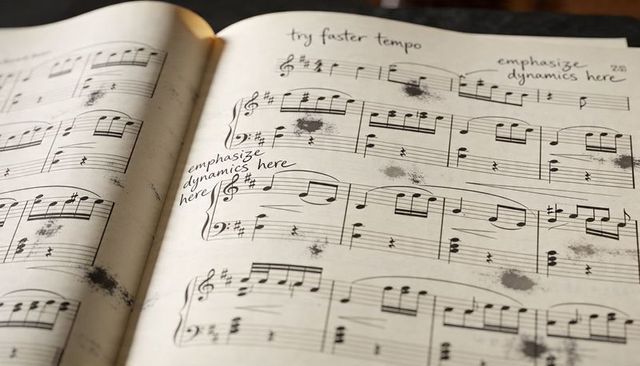 try faster tempo
emphasize
dynamics here
emphasize
dynamics here
here